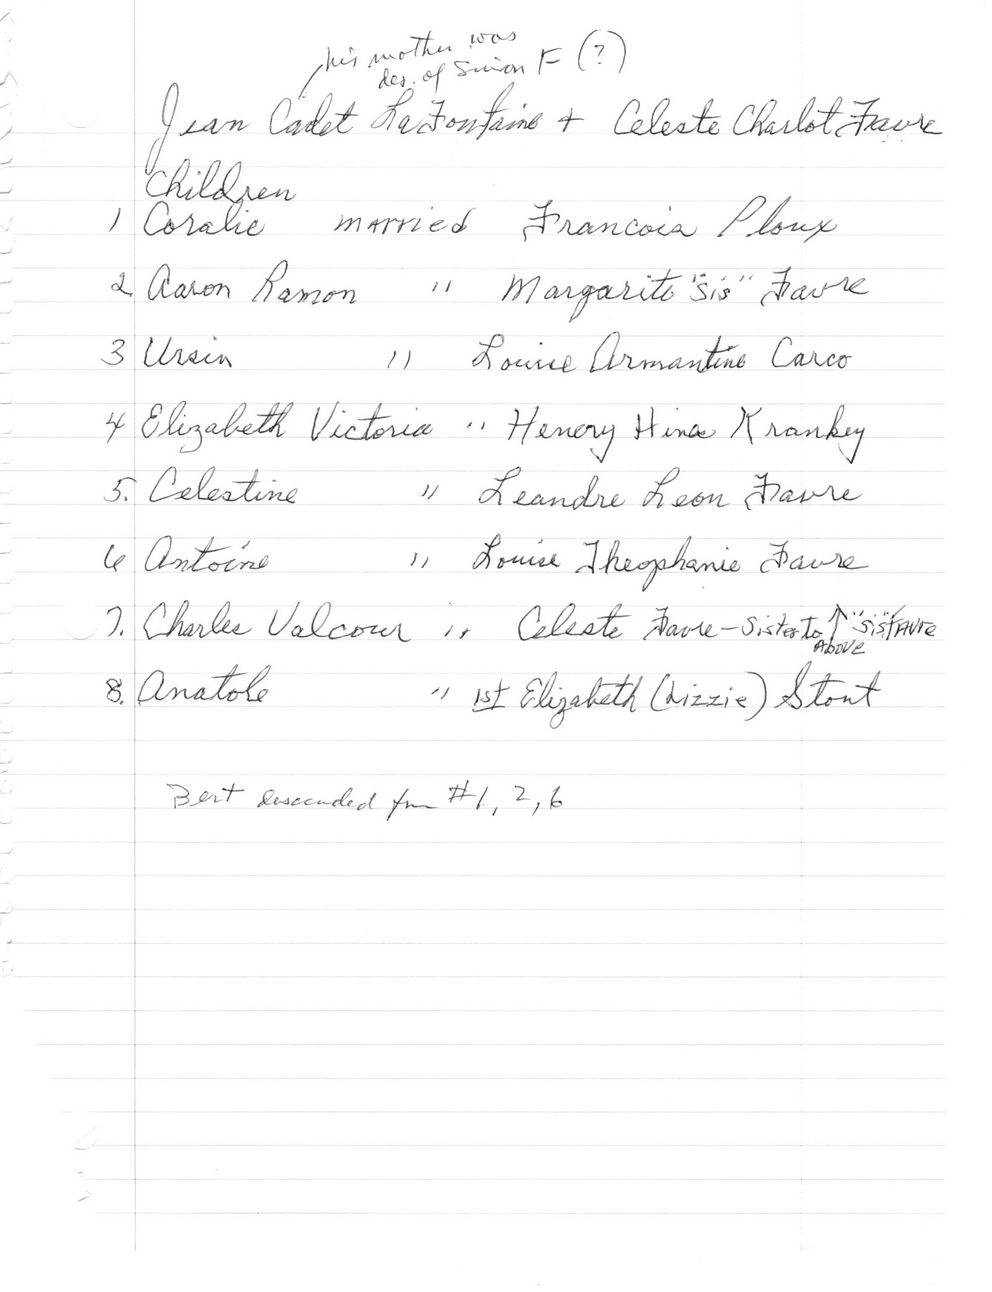 his mother was
des. of Simon F (?)
Jean Cadet LaFontaine + Celeste Charlot Favre
Children
1 Coralie married Francois Ploux
2 Aaron Ramon " Margarite "Sis" Favre
3 Ursin " Louise Armantine Carco
4 Elizabeth Victoria " Henery Hines Krankey
5. Celestine " Leandre Leon Favre
6 Antoine " Louise Theophanie Favre
7. Charles Valcour " Celeste Favre - Sister to ↑ "Sis" FAVre
ABOVE
8. Anatole " 1st Elizabeth (Lizzie) Stout
Bert descended from #1, 2, 6